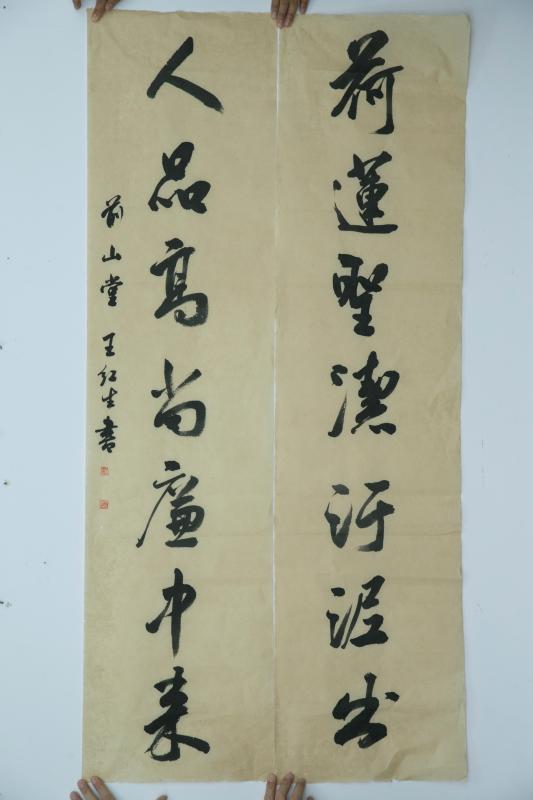 荷蓮聖潔汙泥出
人品高尚廉中來
前山堂 王紅生書